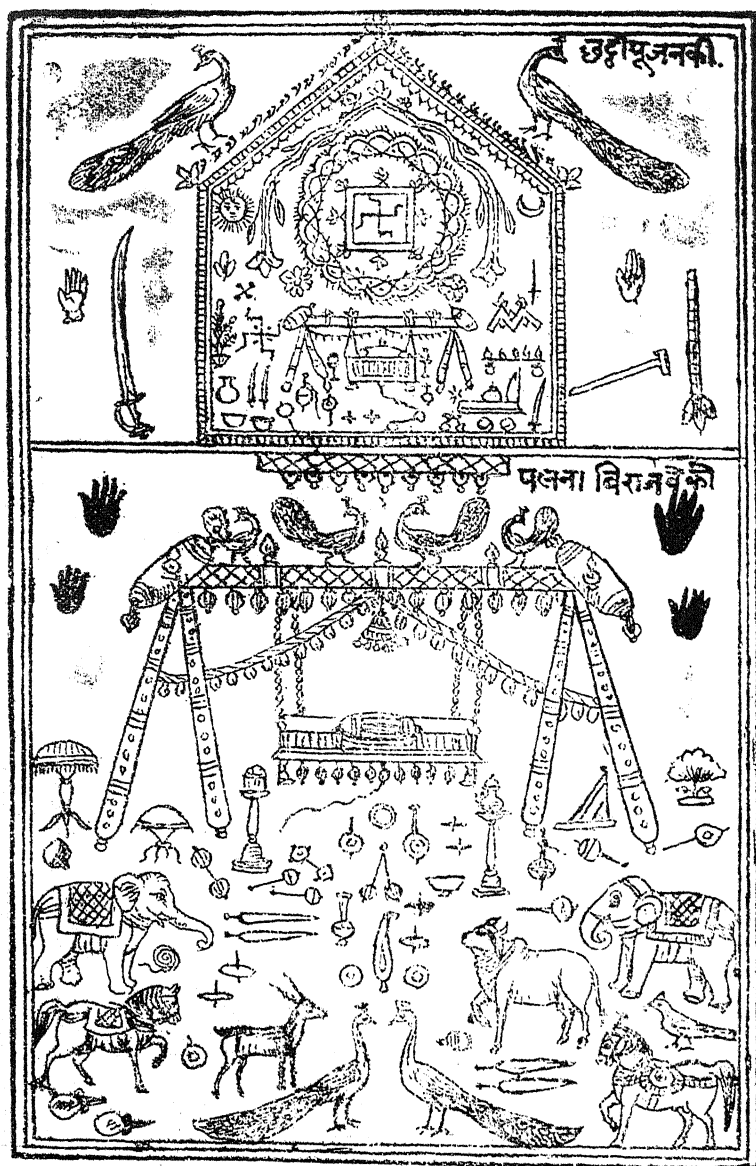 छट्ठीपूजनकी.
पलना विराजवेकी